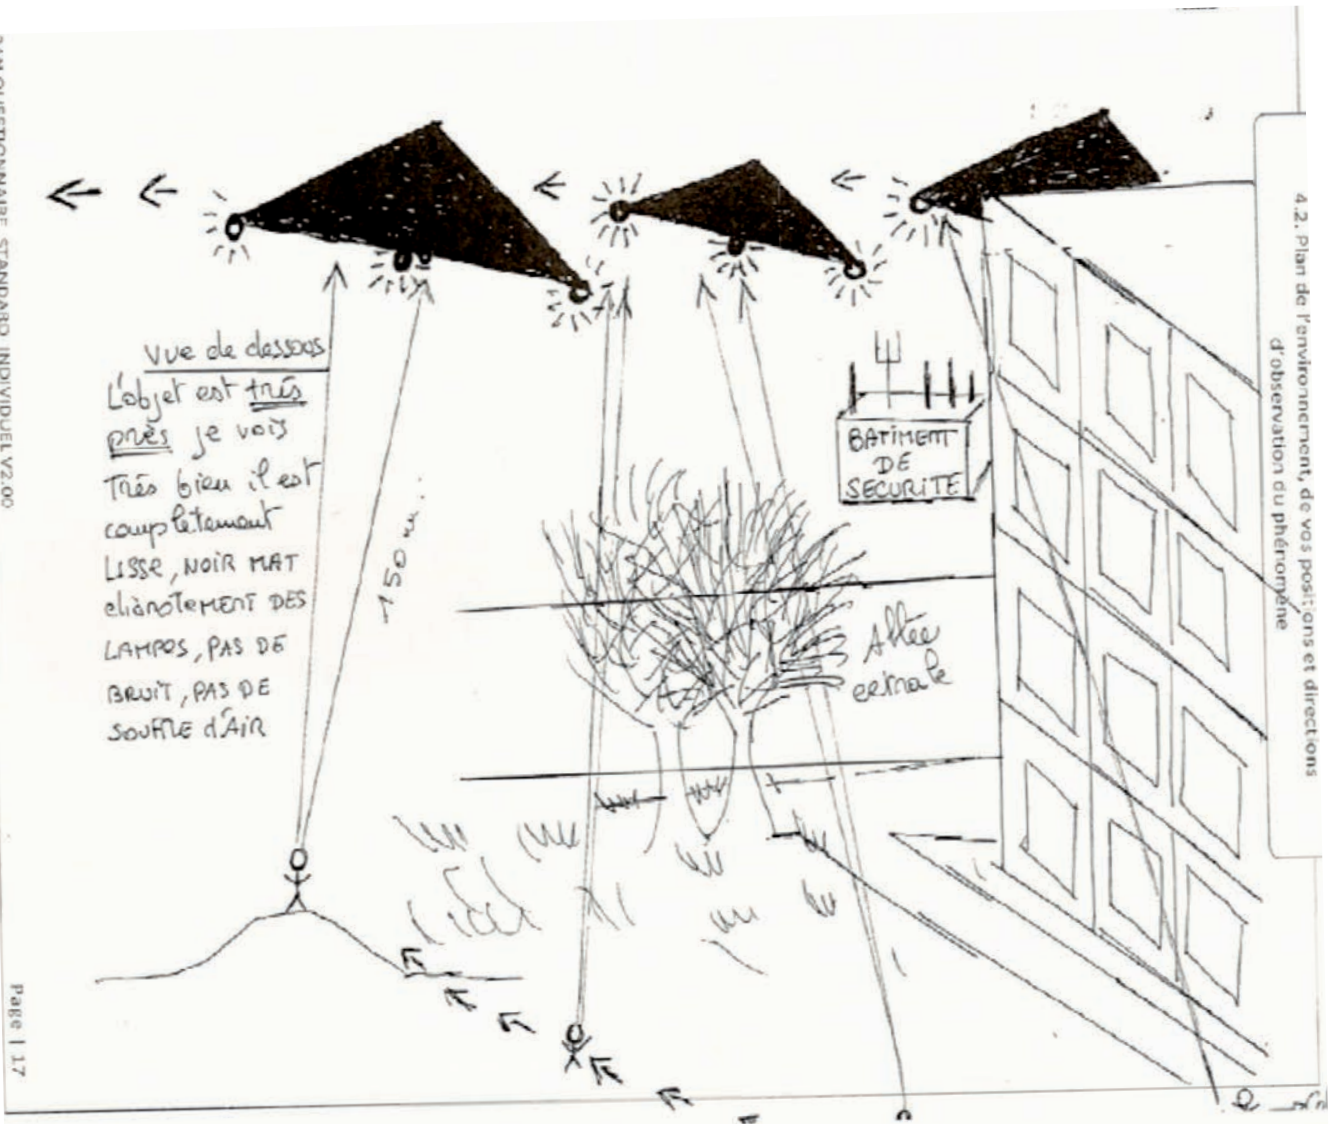 4.2. Plan de l'environnement, de vos positions et directions
d'observation du phénomène
Vue de dessous
L'objet est très
près je vois
Très bien il est
complètement
LISSE, NOIR MAT
LAMPOS, PAS DE
BRUIT, PAS DE
SOUFFLE d'AIR
150 m.
BATIMENT
DE
SECURITE
Allée
QUESTIONNAIRE STANDARD INDIVIDUEL V2.00
Page | 17